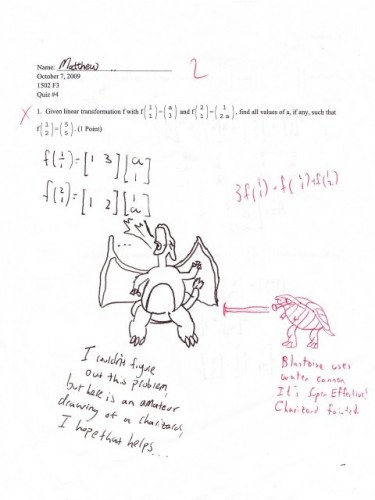 Name: Matthew
2
October 7, 2009
1502 F3
Quiz #4
X 1. Given linear transformation f with f(1 1)=(a 3) and f(2 1)=(1 2a), find all values of a, if any, such that
f(1 2)=(5 5). (1 Point)
f(1 1)=[1 3][a 1]
f(2 1)=[1 2][1 a]
...
I couldn't figure
out this problem,
but here is an amateur
drawing of a charizard,
I hope that helps...
Blastoise uses
water cannon
It's Super Effective!
Charizard fainted